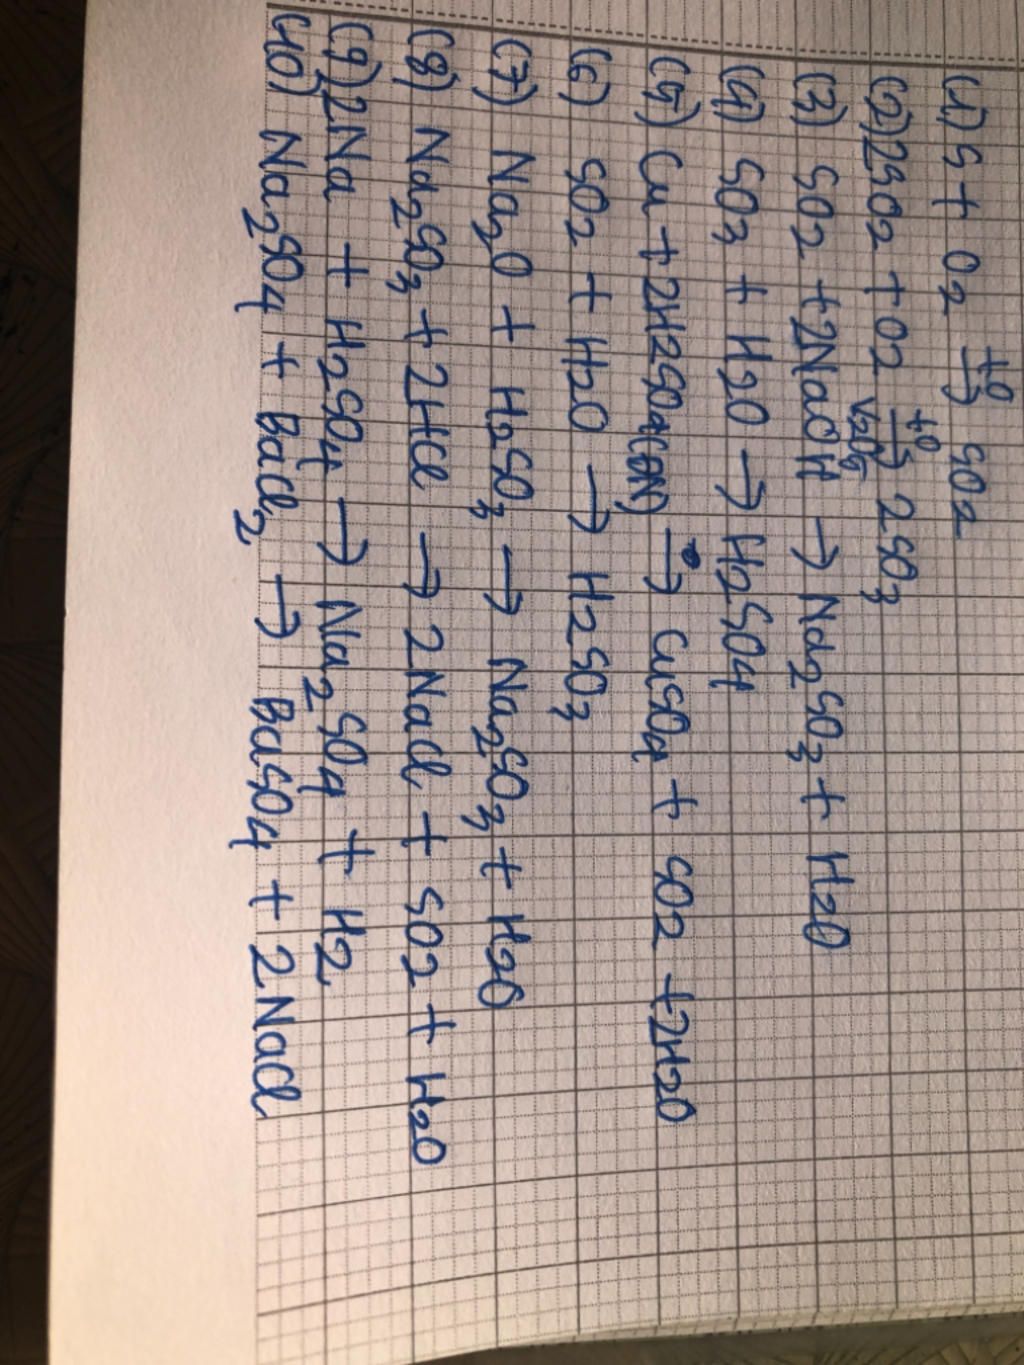 (1) S + O2 t0→ SO2
(2) 2SO2 + O2 t0→ V2O5 2SO3
(3) SO2 + 2NaOH → Na2SO3 + H2O
(4) SO3 + H2O → H2SO4
(5) Cu + 2H2SO4(ĐN) → CuSO4 + SO2 + 2H2O
(6) SO2 + H2O → H2SO3
(7) Na2O + H2SO3 → Na2SO3 + H2O
(8) Na2SO3 + 2HCl → 2NaCl + SO2 + H2O
(9) 2Na + H2SO4 → Na2SO4 + H2
(10) Na2SO4 + BaCl2 → BaSO4 + 2NaCl